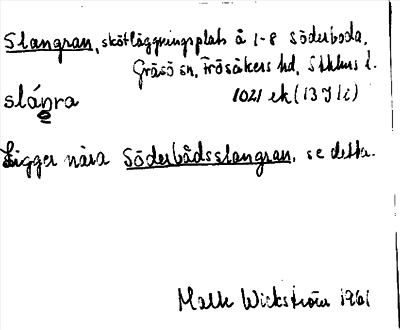 Slangran, skötläggningsplats å 1-8 Söderboda,
Gräsö sn, Frösåkers hd, Sthlms l.
slángra 1021 ek (13 I 1 i)
Ligger nära Söderbådsslangran, se detta.
Malte Wickström 1961